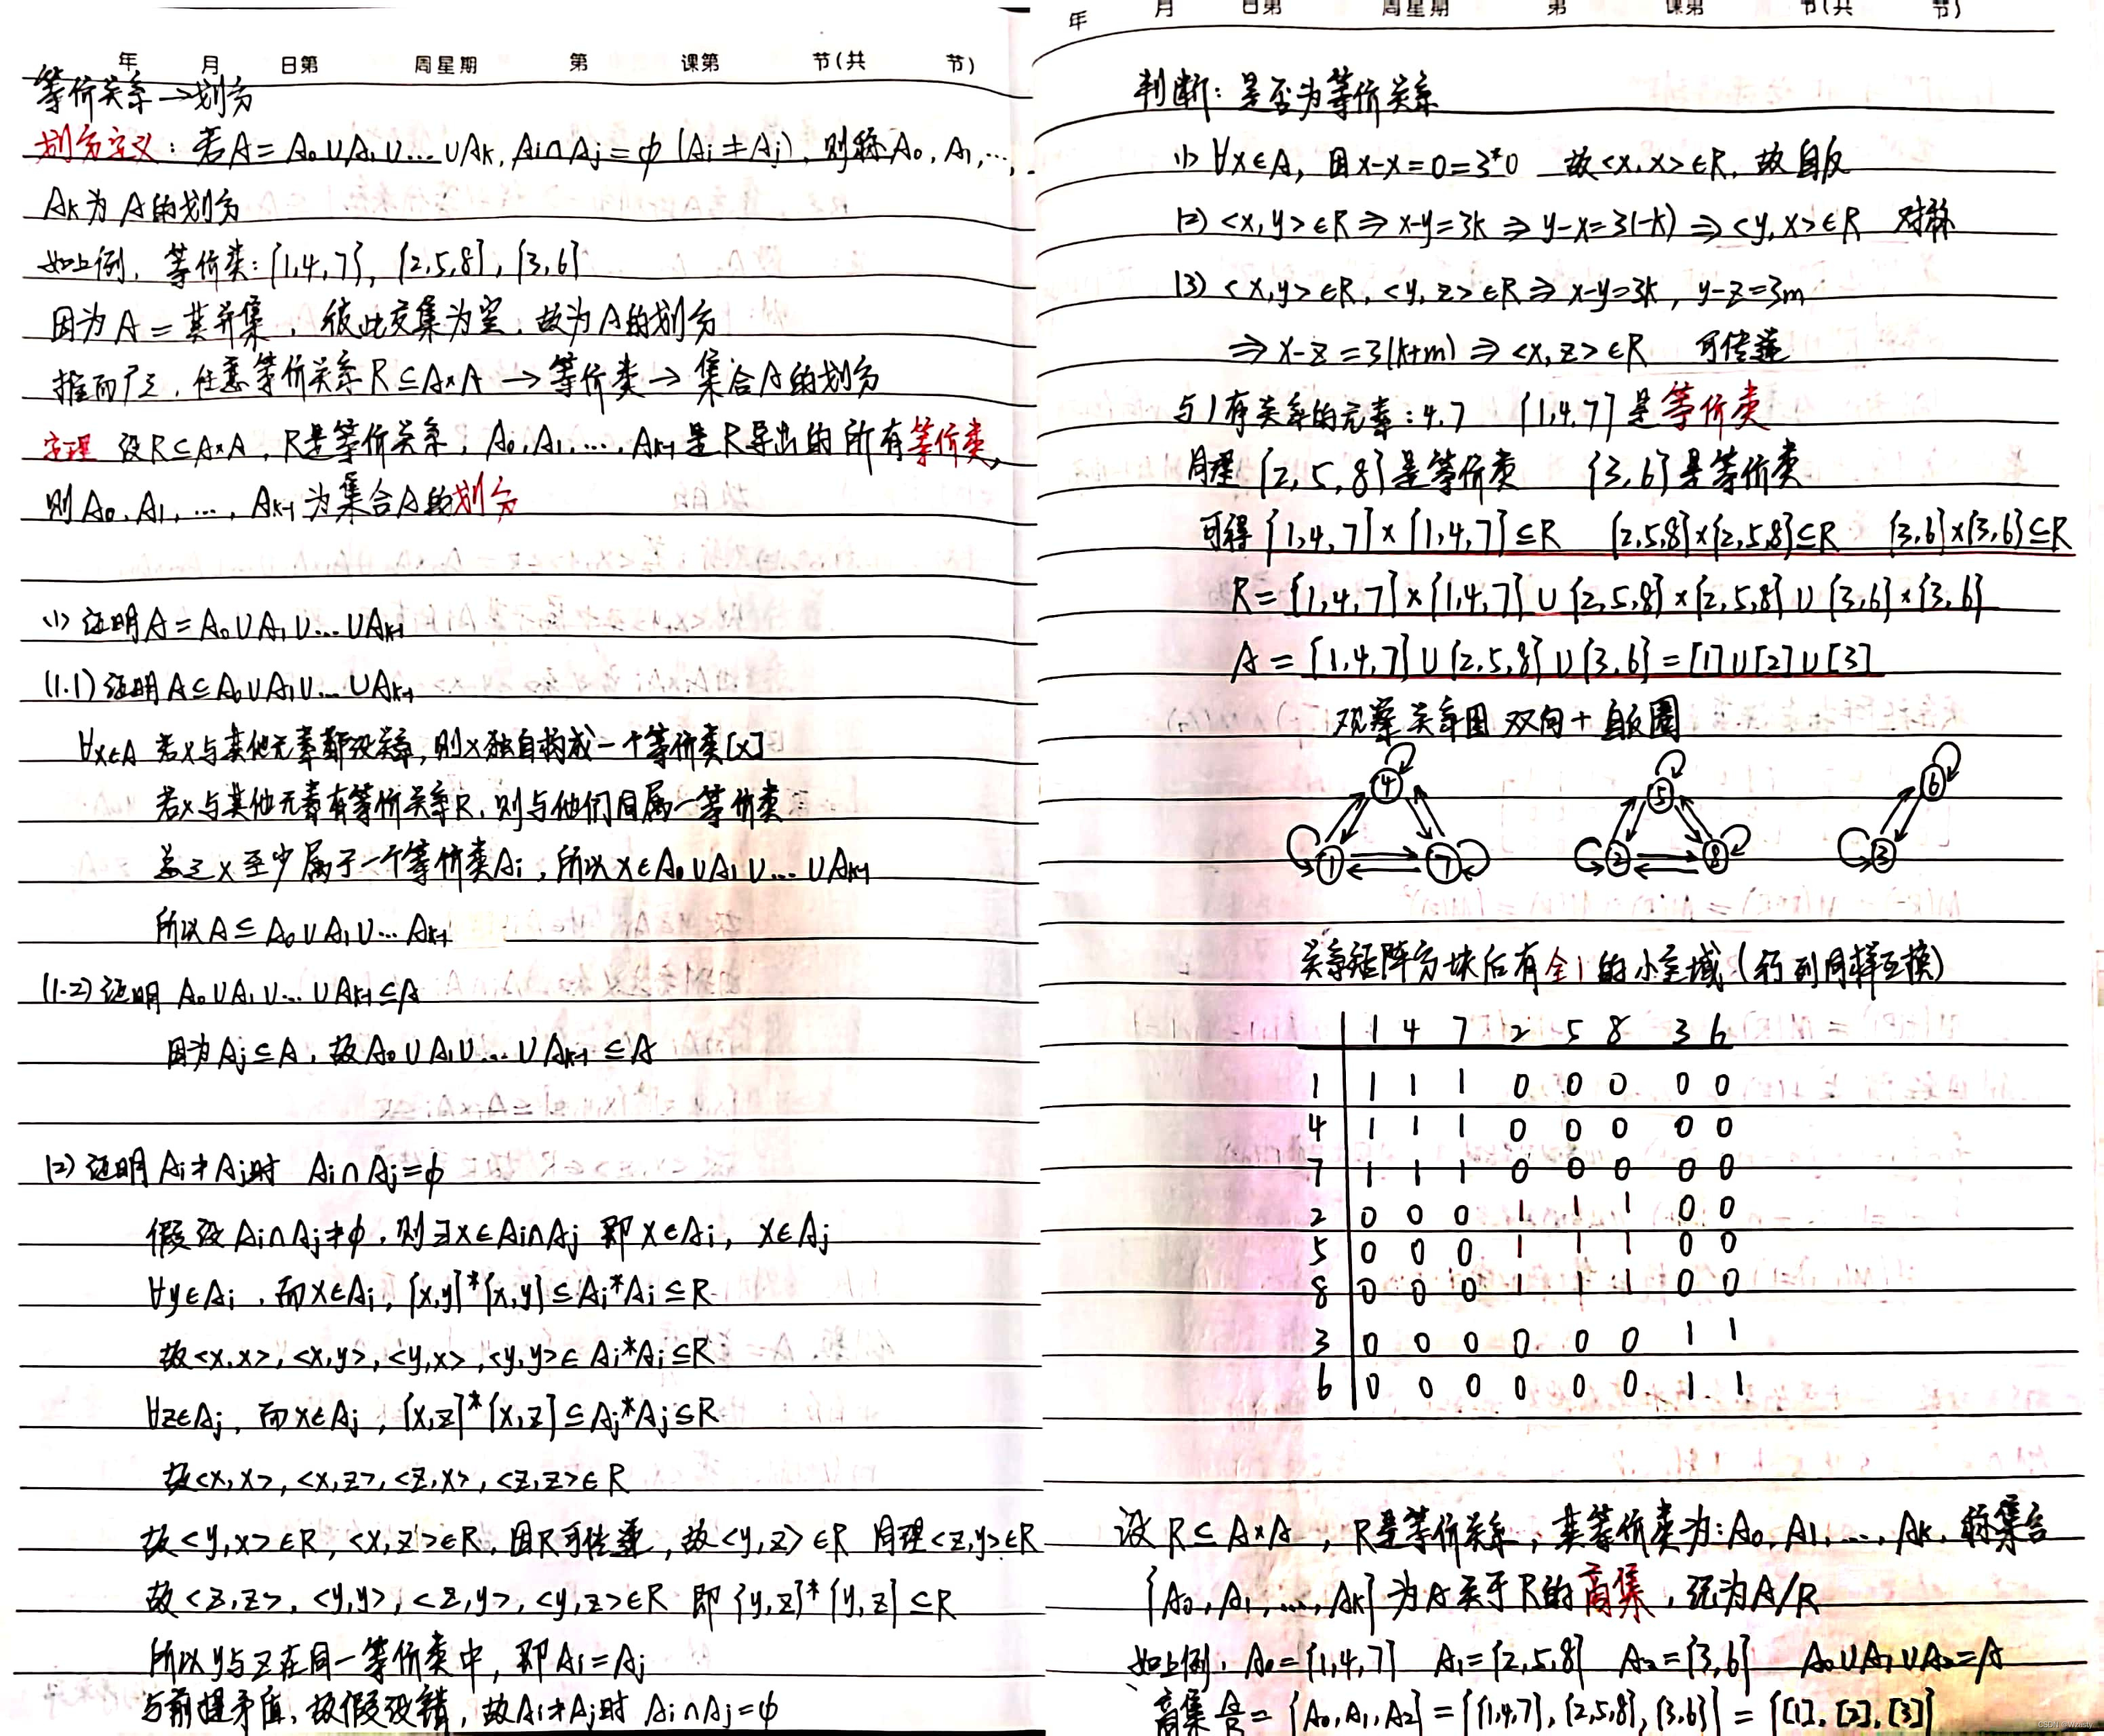 年 月 日第 周星期 第 课第 节(共 节)
等价关系→划分
划分定义：若A=A₀∪A₁∪…∪Aₖ, Aᵢ∩Aⱼ=ϕ (Aᵢ≠Aⱼ), 则称A₀, A₁,…,
Aₖ为A的划分
如上例, 等价类:{1,4,7}, {2,5,8}, {3,6}
因为A=其并集, 彼此交集为空, 故为A的划分
推而广之, 任意等价关系R⊆A×A→等价类→集合A的划分
定理 设R⊆A×A, R是等价关系, A₀,A₁,…,Aₖ₋₁是R导出的所有等价类,
则A₀,A₁,…,Aₖ₋₁为集合A的划分
(1) 证明A=A₀∪A₁∪…∪Aₖ₋₁
(1.1) 证明A⊆A₀∪A₁∪…∪Aₖ₋₁
∀x∈A 若x与其他元素都没关系, 则x独自构成一个等价类[x]
若x与其他元素有等价关系R, 则与他们同属一等价类
总之x至少属于一个等价类Aᵢ, 所以x∈A₀∪A₁∪…∪Aₖ₋₁
所以A⊆A₀∪A₁∪…Aₖ₋₁
(1.2) 证明 A₀∪A₁∪…∪Aₖ₋₁⊆A
因为Aⱼ⊆A, 故A₀∪A₁∪…∪Aₖ₋₁⊆A
(2) 证明Aᵢ≠Aⱼ时 Aᵢ∩Aⱼ=ϕ
假设Aᵢ∩Aⱼ≠ϕ, 则∃x∈Aᵢ∩Aⱼ 即x∈Aᵢ, x∈Aⱼ
∀y∈Aᵢ, 而x∈Aᵢ, {x,y}*{x,y}⊆Aᵢ*Aᵢ⊆R
故<x,x>,<x,y>,<y,x>,<y,y>∈Aᵢ*Aᵢ⊆R
∀z∈Aⱼ, 而x∈Aⱼ, {x,z}*{x,z}⊆Aⱼ*Aⱼ⊆R
故<x,x>,<x,z>,<z,x>,<z,z>∈R
故<y,x>∈R, <x,z>∈R, 因R可传递, 故<y,z>∈R 同理<z,y>∈R
故<z,z>,<y,y>,<z,y>,<y,z>∈R 即{y,z}*{y,z}⊆R
所以y与z在同一等价类中, 即Aᵢ=Aⱼ
与前提矛盾, 故假设错, 故Aᵢ≠Aⱼ时 Aᵢ∩Aⱼ=ϕ
年 月 日第 周星期 第 课第 节(共 节)
判断：是否为等价关系
(1) ∀x∈A, 因x-x=0=3*0 故<x,x>∈R, 故自反
(2) <x,y>∈R⇒x-y=3k⇒y-x=3(-k)⇒<y,x>∈R 对称
(3) <x,y>∈R,<y,z>∈R⇒x-y=3k, y-z=3m
⇒x-z=3(k+m)⇒<x,z>∈R 可传递
与1有关系的元素:4,7 {1,4,7}是等价类
同理{2,5,8}是等价类 {3,6}是等价类
可得{1,4,7}×{1,4,7}⊆R {2,5,8}×{2,5,8}⊆R {3,6}×{3,6}⊆R
R={1,4,7}×{1,4,7}∪{2,5,8}×{2,5,8}∪{3,6}×{3,6}
A={1,4,7}∪{2,5,8}∪{3,6}=[1]∪[2]∪[3]
观察关系图 双向+自反圈
4 5 6
1 7 2 8 3
关系矩阵分块后有全1的小区域(行列同样互换)
1 4 7 2 5 8 3 6
1 1 1 1 0 0 0 0 0
4 1 1 1 0 0 0 0 0
7 1 1 1 0 0 0 0 0
2 0 0 0 1 1 1 0 0
5 0 0 0 1 1 1 0 0
8 0 0 0 1 1 1 0 0
3 0 0 0 0 0 0 1 1
6 0 0 0 0 0 0 1 1
设R⊆A×A, R是等价关系, 其等价类为:A₀,A₁,…,Aₖ, 称集合
{A₀,A₁,…,Aₖ}为A关于R的商集, 记为A/R
如上例, A₀={1,4,7} A₁={2,5,8} A₂={3,6} A₀∪A₁∪A₂=A
商集A/R={A₀,A₁,A₂}={{1,4,7},{2,5,8},{3,6}}={[1],[2],[3]}